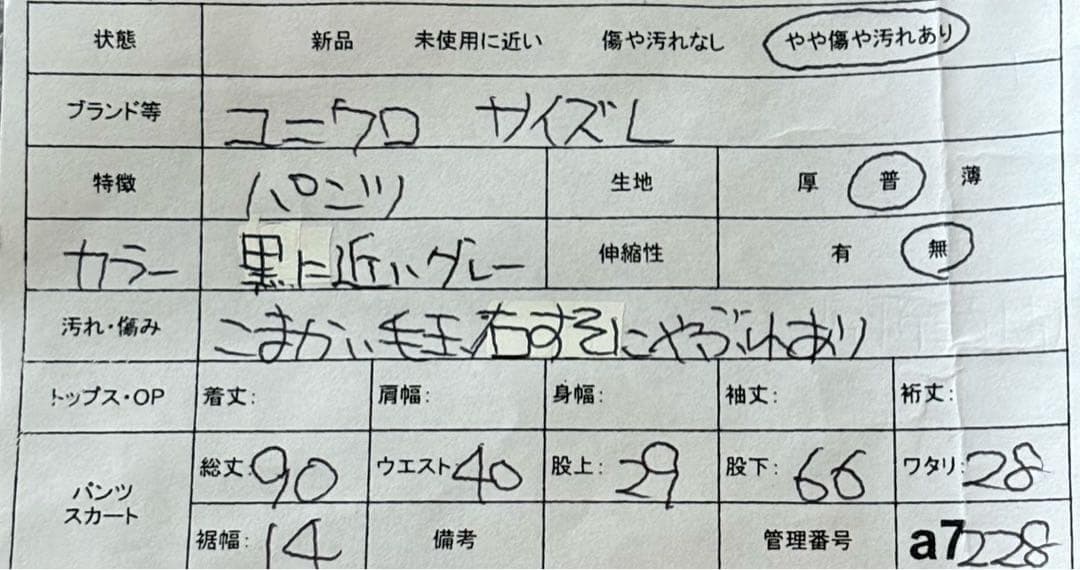 状態 新品 未使用に近い 傷や汚れなし やや傷や汚れあり
ブランド等 ユニクロ サイズL
特徴 パンツ 生地 厚 普 薄
カラー 黒に近いグレー 伸縮性 有 無
汚れ・傷み こまかい毛玉、右すそにやぶれあり
トップス・OP 着丈: 肩幅: 身幅: 袖丈: 裄丈:
パンツ
スカート
総丈:90 ウエスト40 股上:29 股下:66 ワタリ:28
裾幅:14 備考 管理番号 a7228